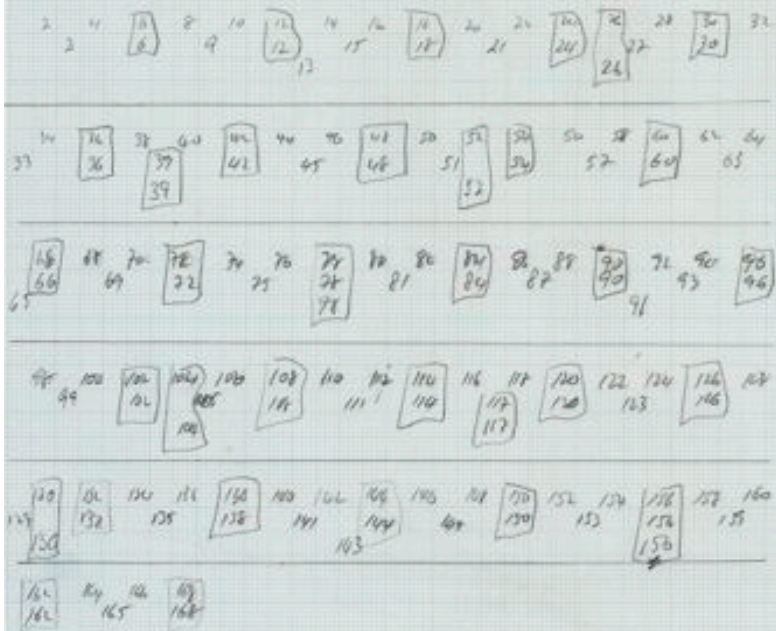 2 4 6 8 10 12 14 16 18 20 22 24 26 28 30 32
3 6 9 12 15 18 21 24 27 30
13 26
34 36 38 40 42 44 46 48 50 52 54 56 58 60 62 64
33 36 39 42 45 48 51 54 57 60 63
39 52
66 68 70 72 74 76 78 80 82 84 86 88 90 92 94 96
66 69 72 75 78 81 84 87 90 93 96
65 78 91
98 100 102 104 106 108 110 112 114 116 118 120 122 124 126 128
99 102 105 108 111 114 117 120 123 126
104 117
130 132 134 136 138 140 142 144 146 148 150 152 154 156 158 160
129 132 135 138 141 144 147 150 153 156 159
130 143 156
162 164 166 168
162 165 168